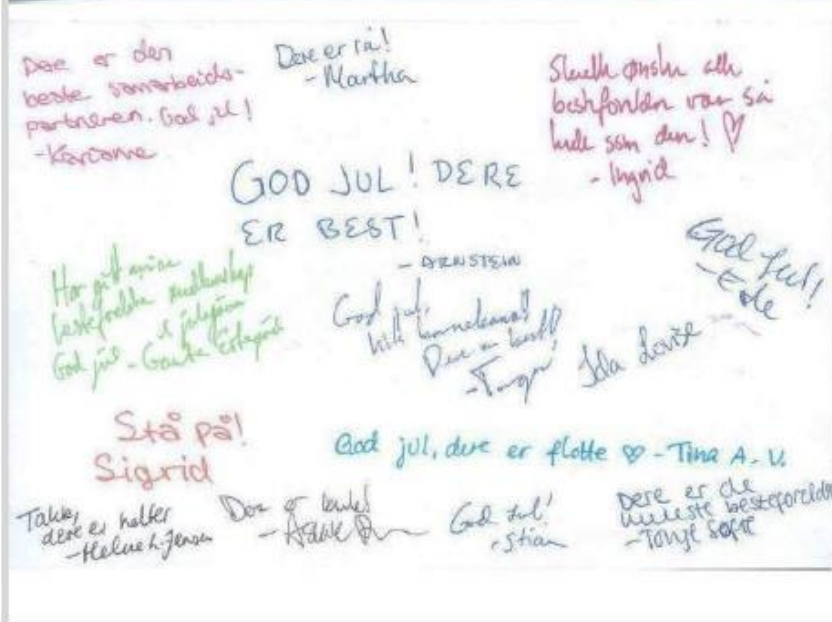 Dere er den
beste samarbeids-
partneren. God jul!
-Karianne
Dere er rå!
- Martha
Skulle ønske alle
besteforeldre var så
kule som dere! ♡
- Ingrid
GOD JUL! DERE
ER BEST!
- ARNSTEIN
God jul!
- Eide
Har gitt mine
besteforeldre medlemskap
i julegave
God jul - Gaute
God jul,
Dere er best!
Ida Louise
Stå på!
Sigrid
God jul, dere er flotte ♡ - Tina A. U.
Takk,
dere er helter
- Helene L. Jensen
Dere er
God jul!
- Stian
Dere er de
kuleste besteforeldre
- Tonje Sofie